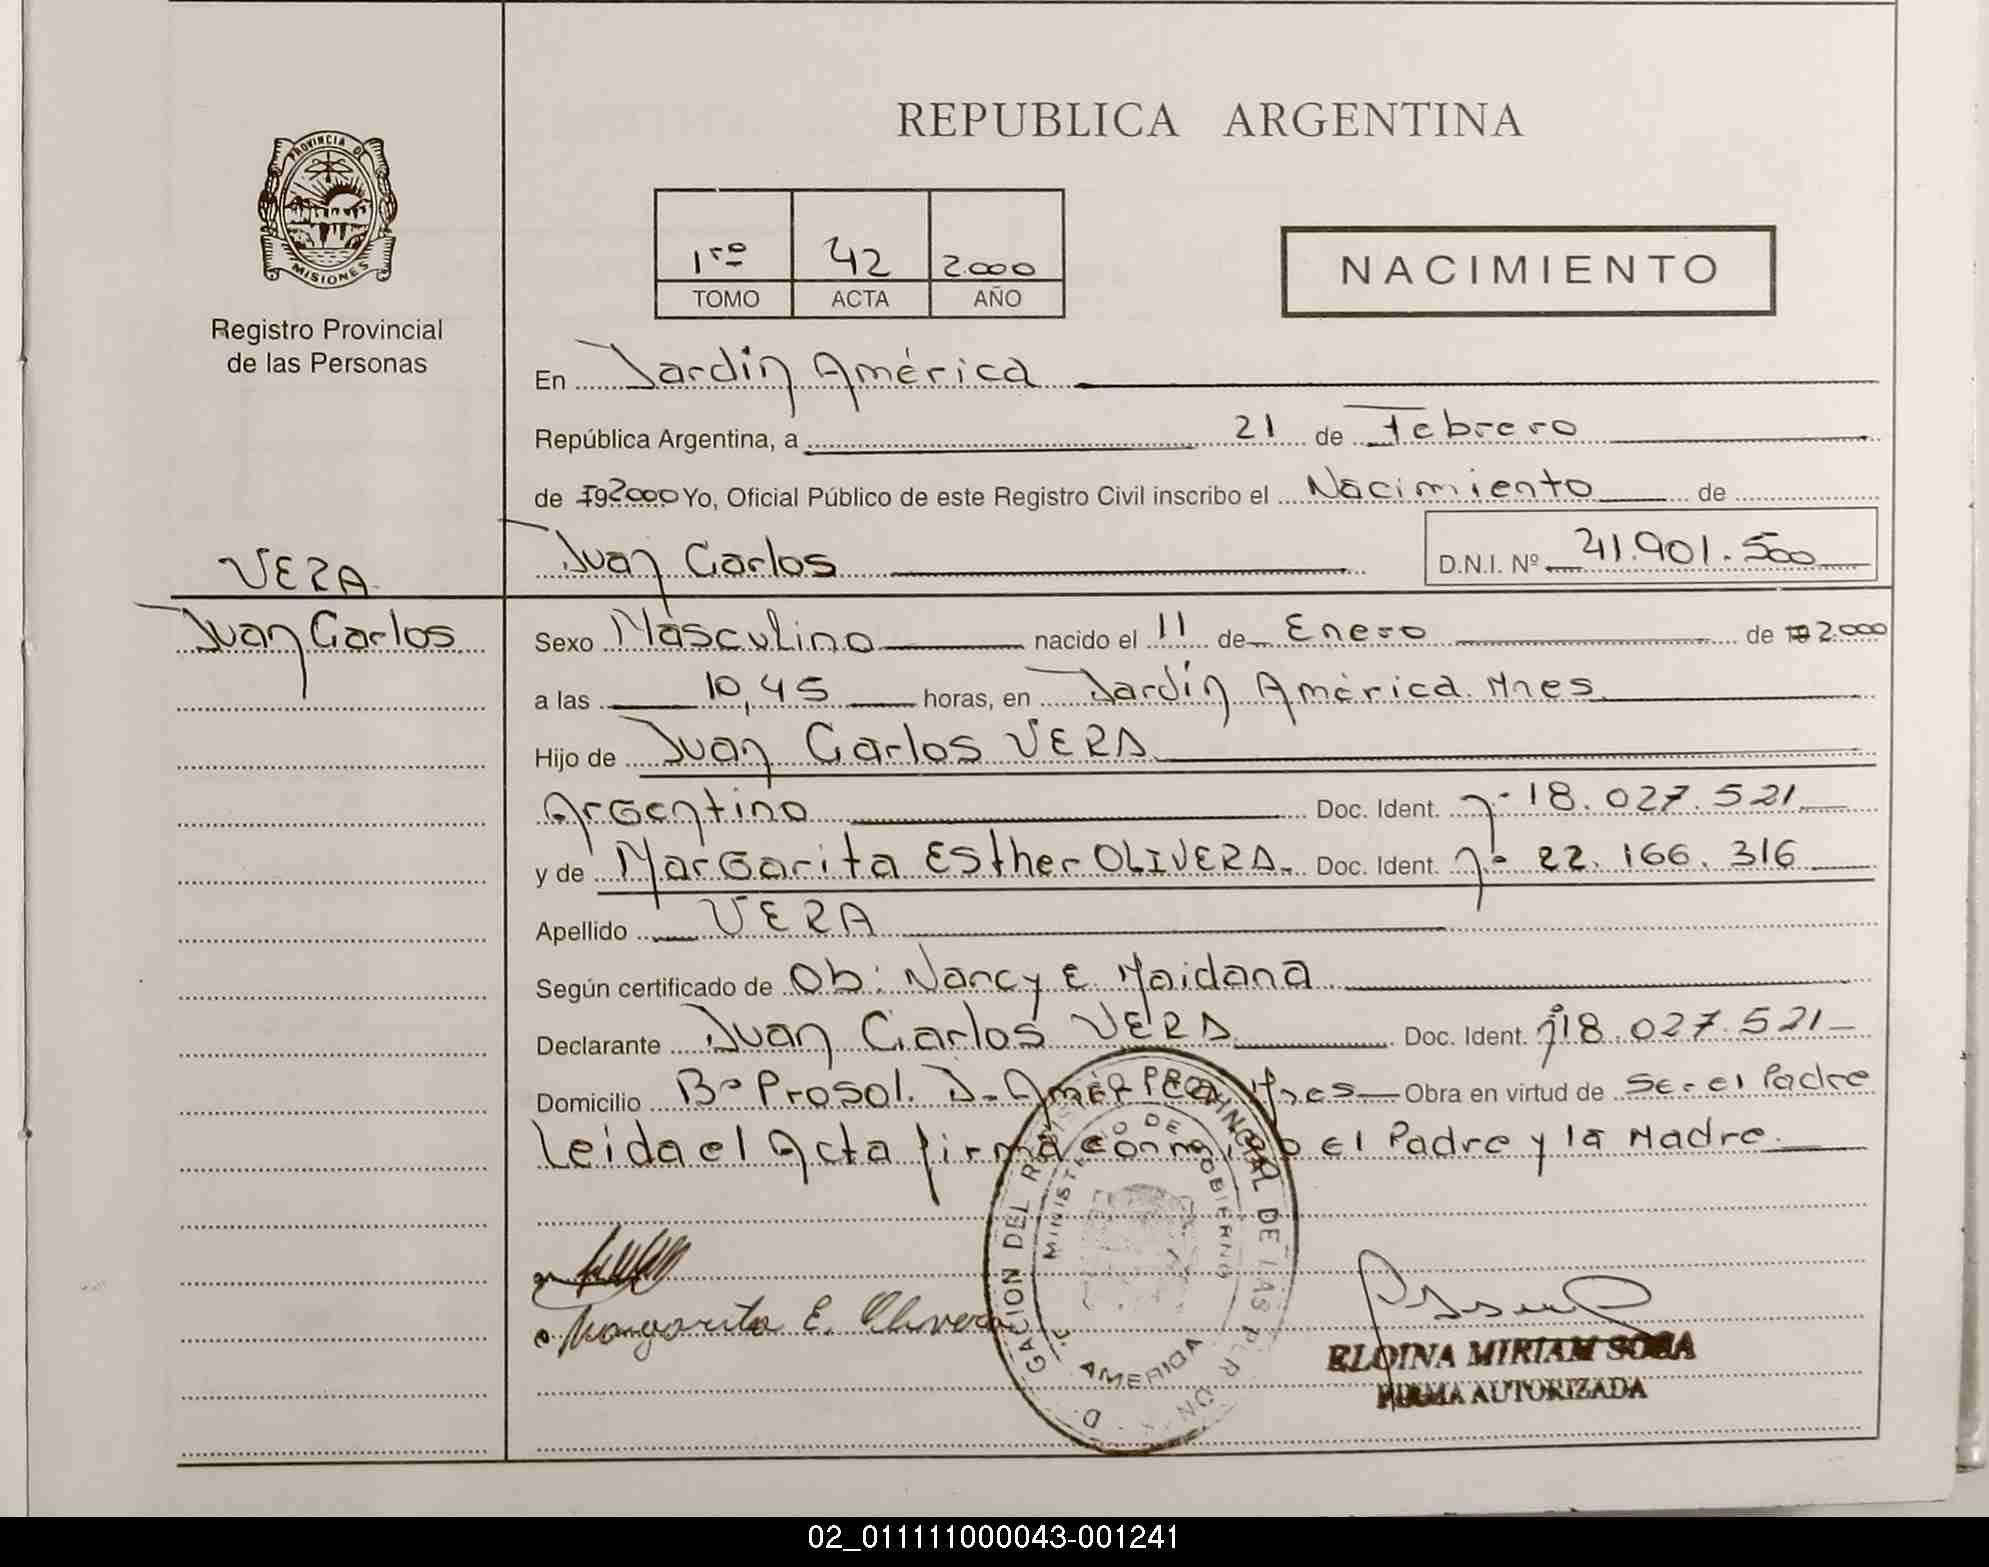 REPUBLICA ARGENTINA
PROVINCIA DE
MISIONES
Registro Provincial
de las Personas
1ro 42 2.000
TOMO ACTA AÑO
NACIMIENTO
En Jardín América
República Argentina, a 21 de Febrero
de 192000 Yo, Oficial Público de este Registro Civil inscribo el Nacimiento de
Juan Carlos D.N.I. Nº 41.901.500
VERA
Juan Carlos
Sexo Masculino nacido el 11 de Enero de 2.000
a las 10,45 horas, en Jardín América Mnes.
Hijo de Juan Carlos VERA
Argentino Doc. Ident. nº 18.027.521
y de Margarita Esther OLIVERA. Doc. Ident. nº 22.166.316
Apellido VERA
Según certificado de Ob: Nancy E. Maidana
Declarante Juan Carlos VERA Doc. Ident. nº 18.027.521
Domicilio Bº Prosol. J. América Mnes Obra en virtud de ser el Padre
Leida el Acta firma conmigo el Padre y la Madre.
Margarita E. Olivera
GACION DEL REGISTRO PROVINCIAL DE LAS PERSONAS
MINISTERIO DE GOBIERNO
AMERICA
ELOINA MIRIAM SOSA
FIRMA AUTORIZADA
02_011111000043-001241